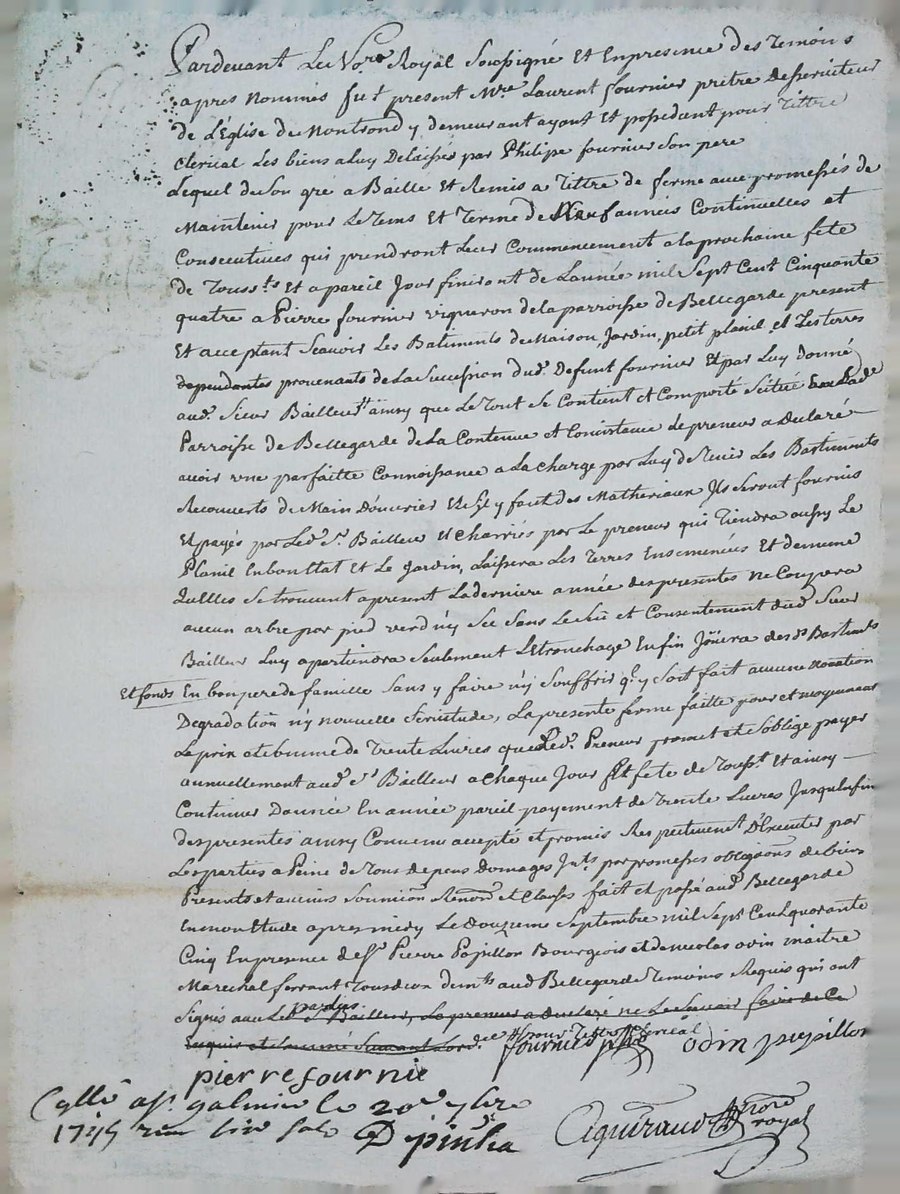 Pardevant Le No.re Royal Soussigné Et En presence des Temoins
apres nommés fut present M.re Laurent fournier prêtre Desserviteur
de L'Eglise de Montrond y demeurant ayant Et possedant pour Tittre
Clerical Les biens a Luy Delaissés par Philipe fournier Son pere
Lequel de Son gré a Baillé Et Remis a Tittre de ferme avec promesses de
Maintenir pour Le tems Et Terme de Neuf années Continuelles et
Consecutives qui prendront Leur Commencement a la prochaine fete
de Touss.ts Et a pareil Jour finiront de L'année mil Sept Cent Cinquante
quatre a Pierre fournier vigneron de la parroisse de Bellegarde present
Et acceptant Scavoir Les Batiments de Maison, Jardin, petit planil et Les terres
dependantes provenants de La Succession dud. Defunt fournier Et par Luy donné
aud. Sieur Bailleur ainsy que Le tout Se Contient et Comporte Scitué
Parroisse de Bellegarde de La Contenue et Consistance Le preneur a declaré
avoir une parfaitte Connoissance a La Charge par Luy de Tenir Les Bastiments
Recouverts de Main d'ouvrier Et S'il y faut des Matheriaux Ils Seront fournis
Et payés par Led. Sr. Bailleur Et Charriés par Le preneur qui Tiendra aussy Le
Planil En bon Etat Et Le Jardin, Laissera Les Terres Ensemencées Et
quelles Se trouvent apresent La derniere année des presentes Ne Coupera
aucun arbre par pied verd n'y Sec Sans Le Sçu et Consentement dud. Sieur
Bailleur Luy apartiendra Seulement L'Etronchage Enfin Jouira des d. Bastim.ts
Et fonds En bon pere de famille Sans y faire n'y Souffrir q.l y Soit fait aucune
Degradation n'y nouvelle Servitude, La presente ferme faitte pour et moyennant
Le prix et Somme de Trente Livres que Led. Preneur promet et S'oblige payer
annuellement aud. Sr. Bailleur a Chaque Jour Et fete de Touss.t Et ainsy
Continuer D'année En année pareil payement de Trente Livres Jusqu'a La fin
des presentes ainsy Convenu accepté et promis Respectivement D'Executer par
Les parties a Peine de Tous depens Domages Int.s par promesses obligaõns de biens
Presents et avenirs Soumiõns Renon.ns et Clauses fait et passé aud. Bellegarde
En mon Etude apres midy Le Douzieme Septembre mil Sept Cent quarante
Cinq En presence de Sr. Pierre Papillon Bourgeois et de Nicolas Odin maitre
Marechal ferrant Tous deux dem.ts aud. Bellegarde Temoins Requis qui ont
Signé avec Les parties Bailleur, Le preneur a declaré ne Le Scavoir faire de Ce
Enquis et Sommé Suivant L'ord.ce
fournier p.tre odin papillon
pierre fournie
Collé a St. galmier le 20e 7bre
1745 Dupinha
Aguiraud No.re royal